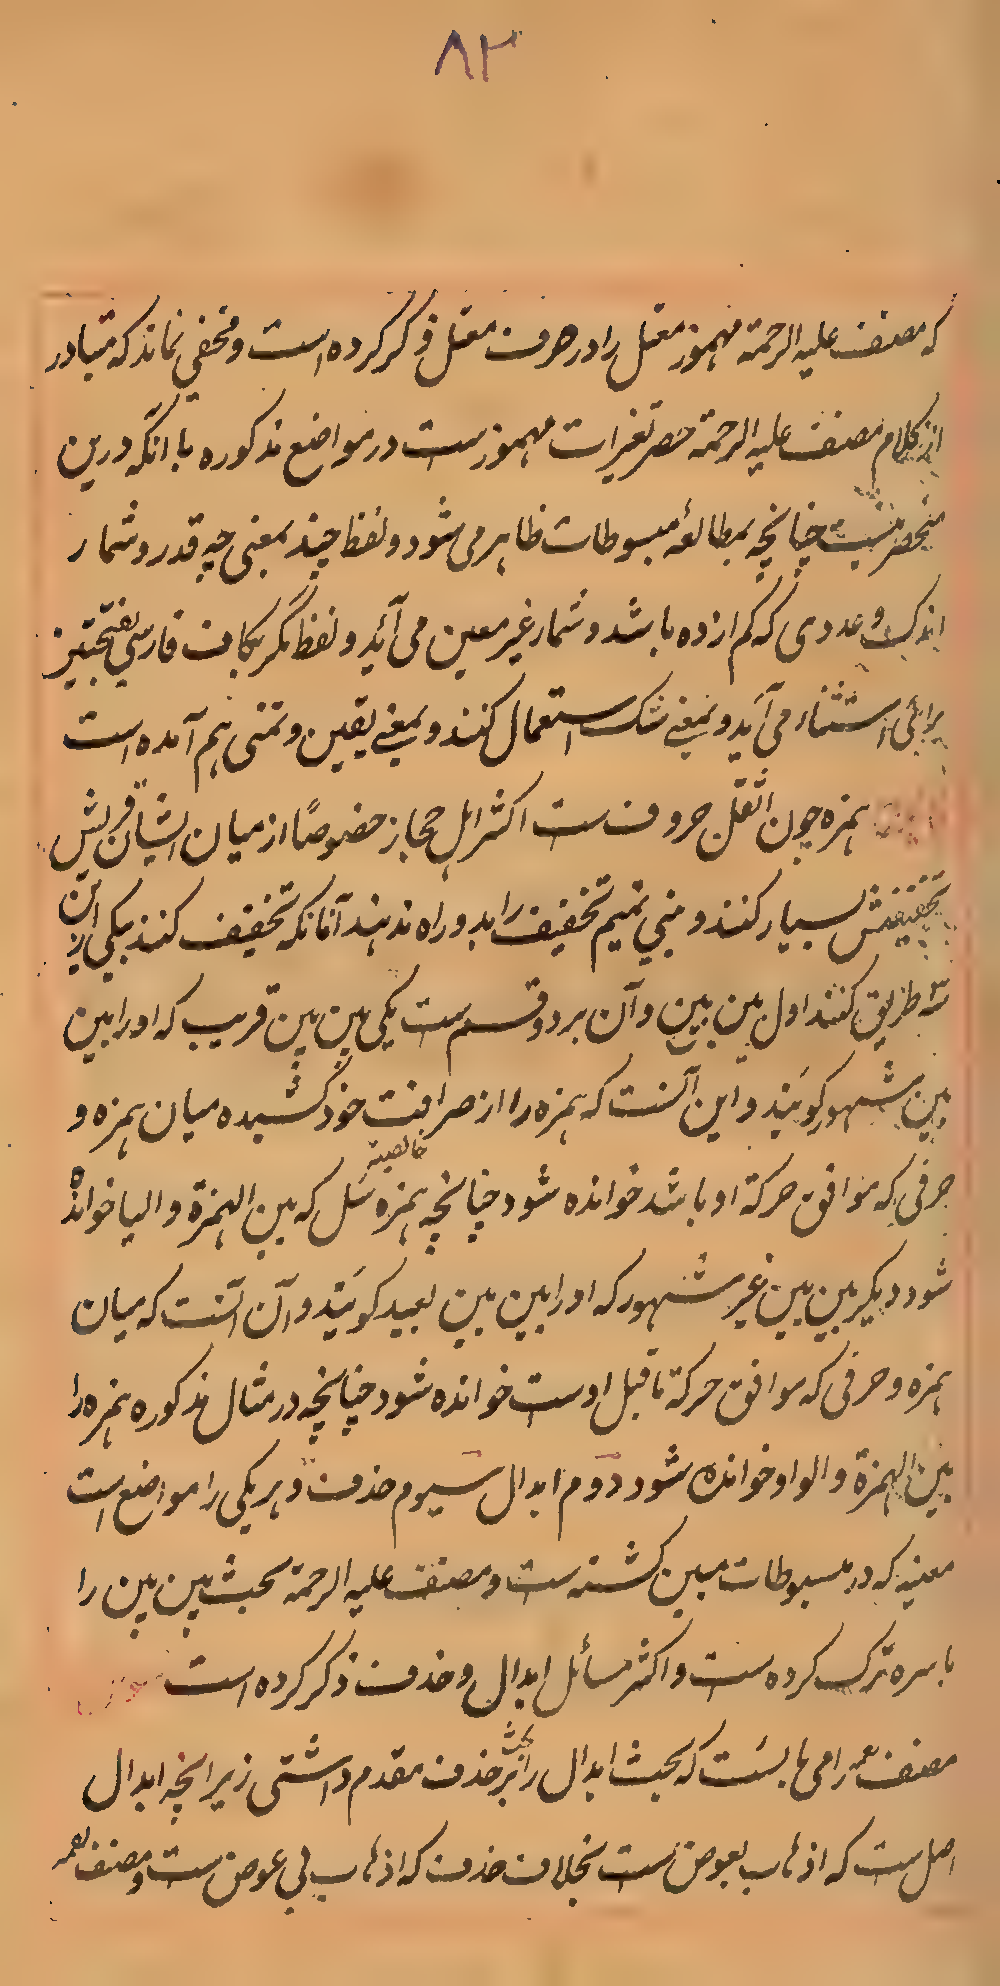 ۸۳
که مصنف علیه الرحمة مهموز معتل را در حرف معتل ذکر کرده است و مخفی نماند که متبادر
از کلام مصنف علیه الرحمة حصر تغیرات مهموزست در مواضع مذکوره با آنکه درین
منحصر نیست چنانچه بمطالعهٔ مبسوطات ظاهر می شود و لفظ چند بمعنی چه قدر و شمار
اندک و عددی که کم از ده باشد و شمار غیر معین می آید و لفظ مگر بکاف فارسی بفتحتین
برای استثناء می آید و بمعنی شک استعمال کنند و بمعنی یقین و تمنی هم آمده است
همزه چون اثقل حروف ست اکثر اهل حجاز خصوصًا از میان ایشان قریش
تخفیفش بسیار کنند و بنی تمیم تخفیف را بدو راه ندهند آنانکه تخفیف کنند بیکی ازین
سه طریق کنند اول بین بین و آن بر دو قسم ست یکی بین بین قریب که او را بین
بین مشهور گویند و این آنست که همزه را از صرافت خود کشیده میان همزه و
حرفی که موافق حرکة او باشد خوانده شود چنانچه همزه سئل که بین الهمزة و الیا خوانده
خالصیته
شود دیگر بین بین غیر مشهور که او را بین بین بعید گویند و آن آنست که میان
همزه و حرفی که موافق حرکة ماقبل اوست خوانده شود چنانچه در مثال مذکوره همزه را
بین الهمزة و الواو خوانده شود دوم ابدال سیوم حذف و هر یکی را مواضع است
معینه که در مبسوطات مبین گشته ست و مصنف علیه الرحمة مبحث بین بین را
باسره ترک کرده ست و اکثر مسائل ابدال و حذف ذکر کرده است
مصنف را می بایست که بحث ابدال را بر بحث حذف مقدم داشتی زیرا چه ابدال
اصل ست که اذهاب بعوض ست بخلاف حذف که اذهاب بی عوض ست و مصنف